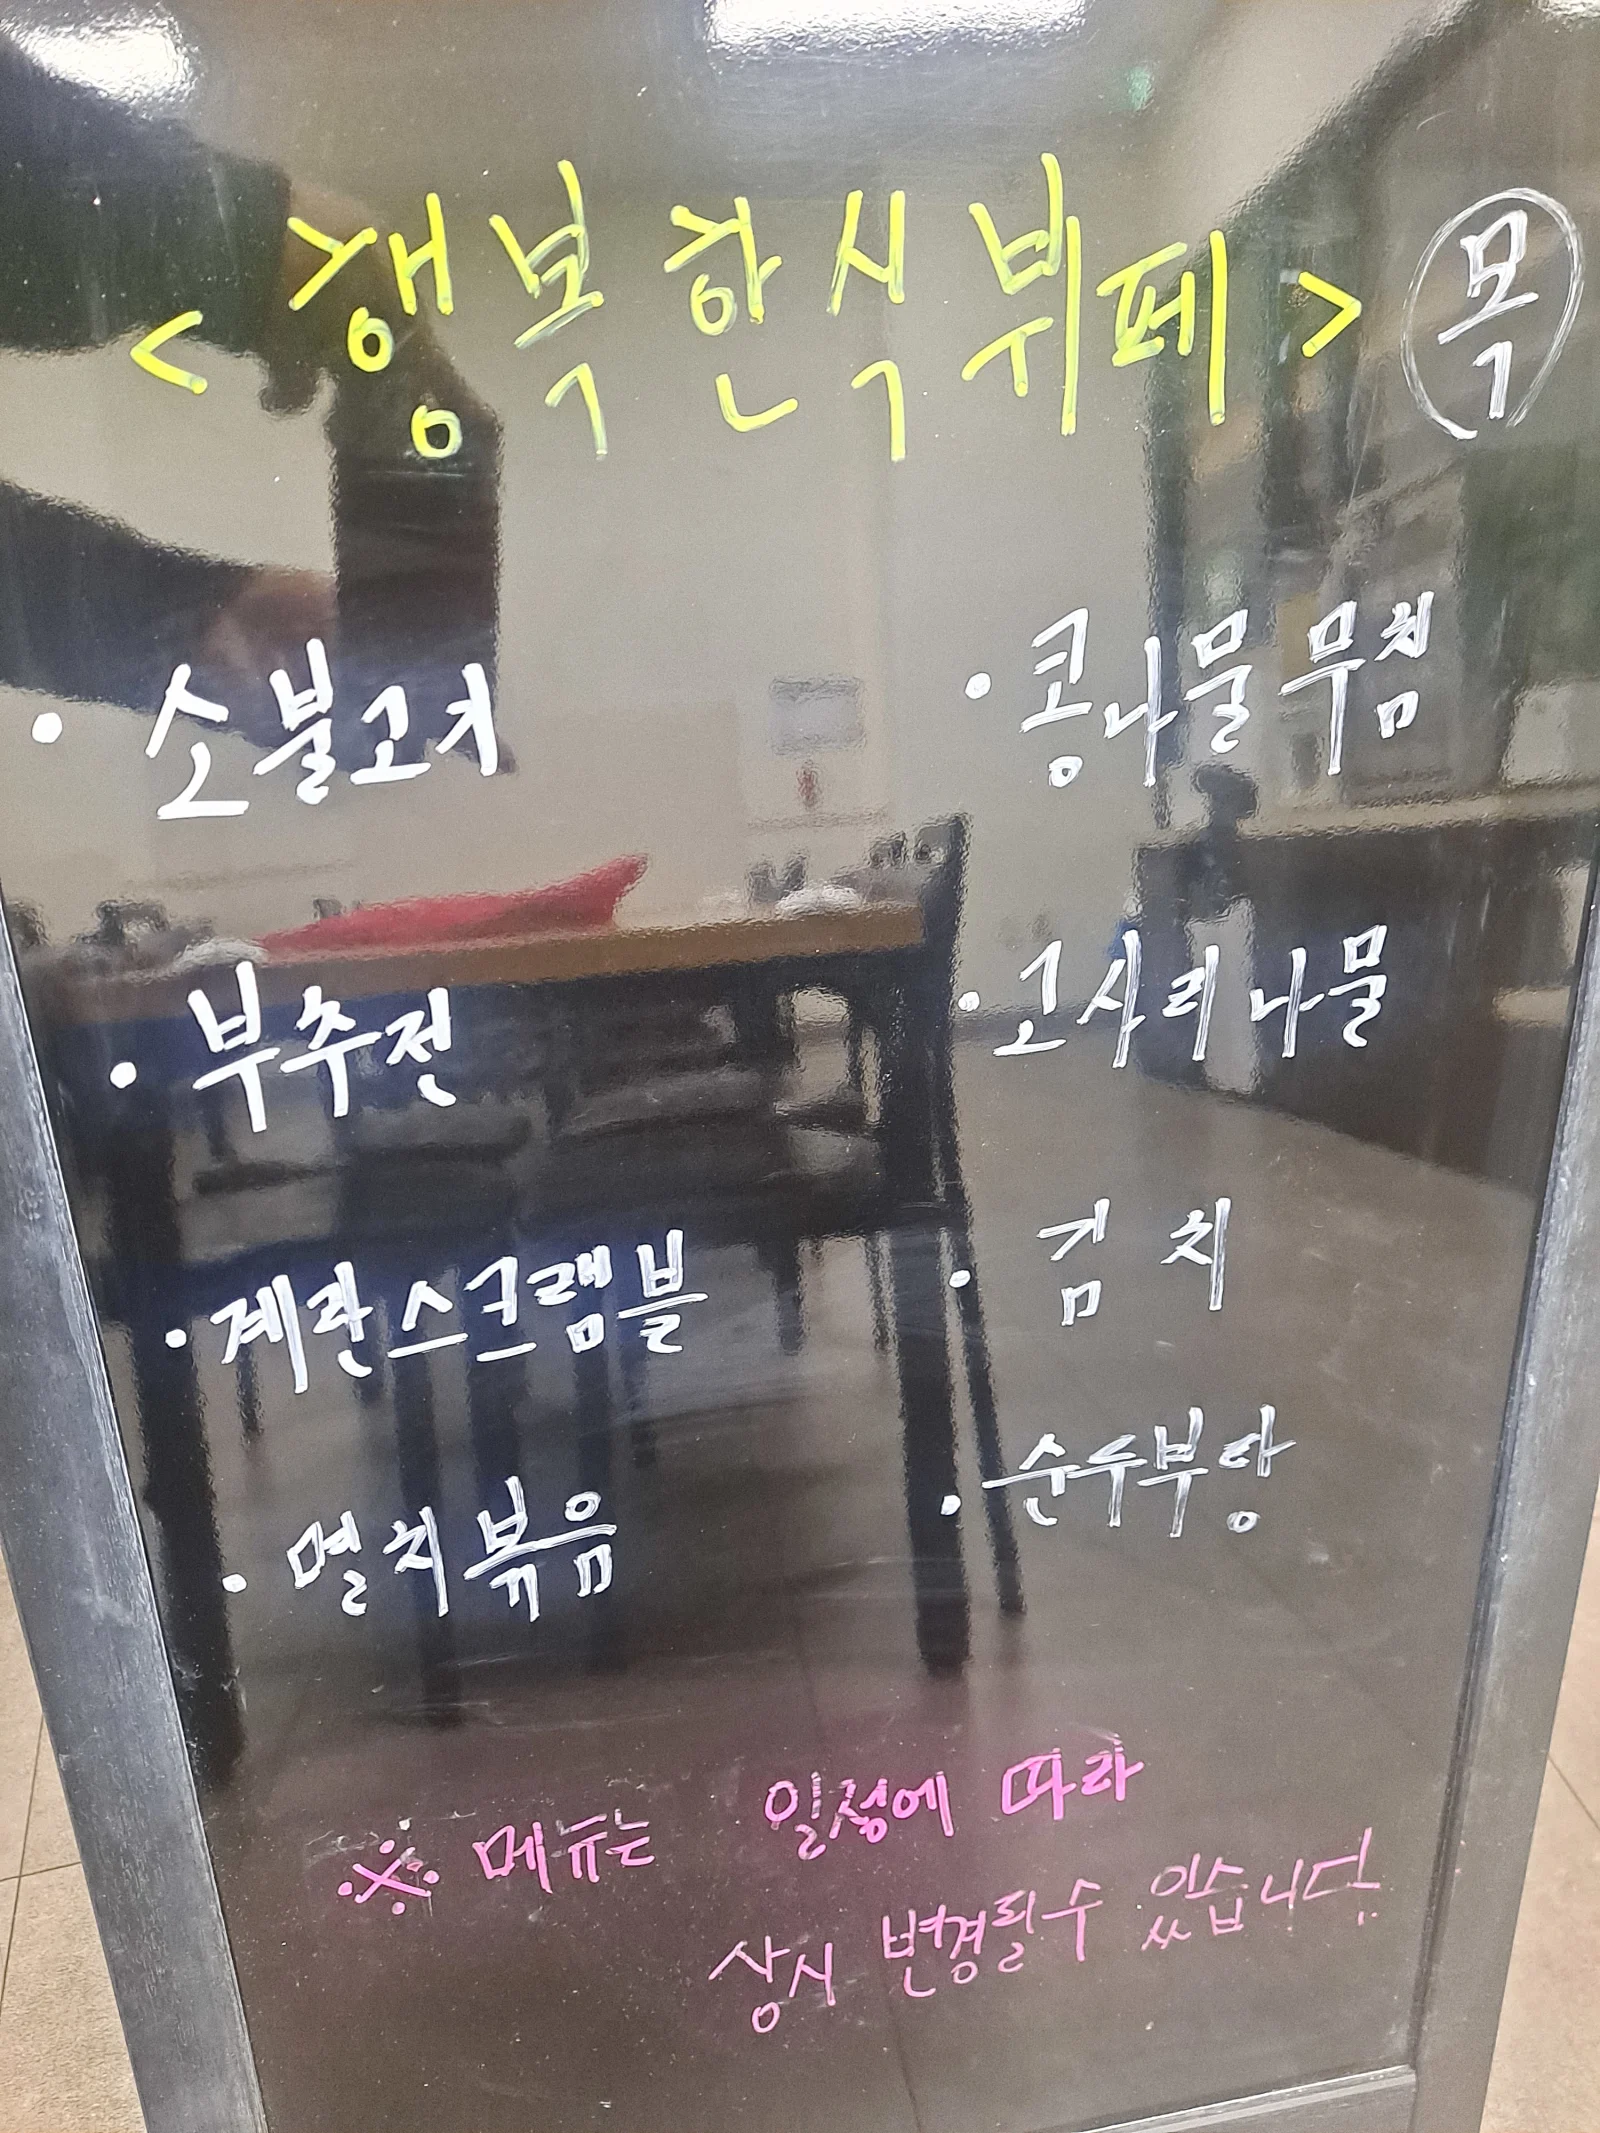 <행복한식뷔페> 목
· 소불고기
· 부추전
· 계란스크램블
· 멸치볶음
· 콩나물무침
· 고사리나물
· 김치
· 순두부탕
※ 메뉴는 일정에 따라
상시 변경될수 있습니다.